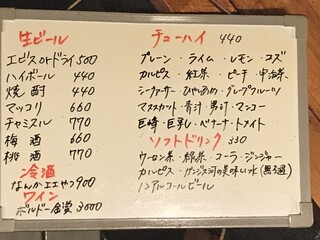 生ビール
エビスorドライ 500
ハイボール 440
焼酎 440
マッコリ 660
チャミスル 770
梅酒 660
桃酒 770
冷酒
なんかエエやつ 900
ワイン
ボルドー金賞 3000
チューハイ 440
プレーン・ライム・レモン・ユズ
カルピス・紅茶・ピーチ・宇治茶
シークヮーサー・ひやしあめ・グレープフルーツ
マスカット・青汁・男汁・マンゴー
巨峰・巨乳・バナーナ・トメイト
ソフトドリンク 330
ウーロン茶・緑茶・コーラ・ジンジャー
カルピス・ガンジス河の美味しい水
ノンアルコールビール